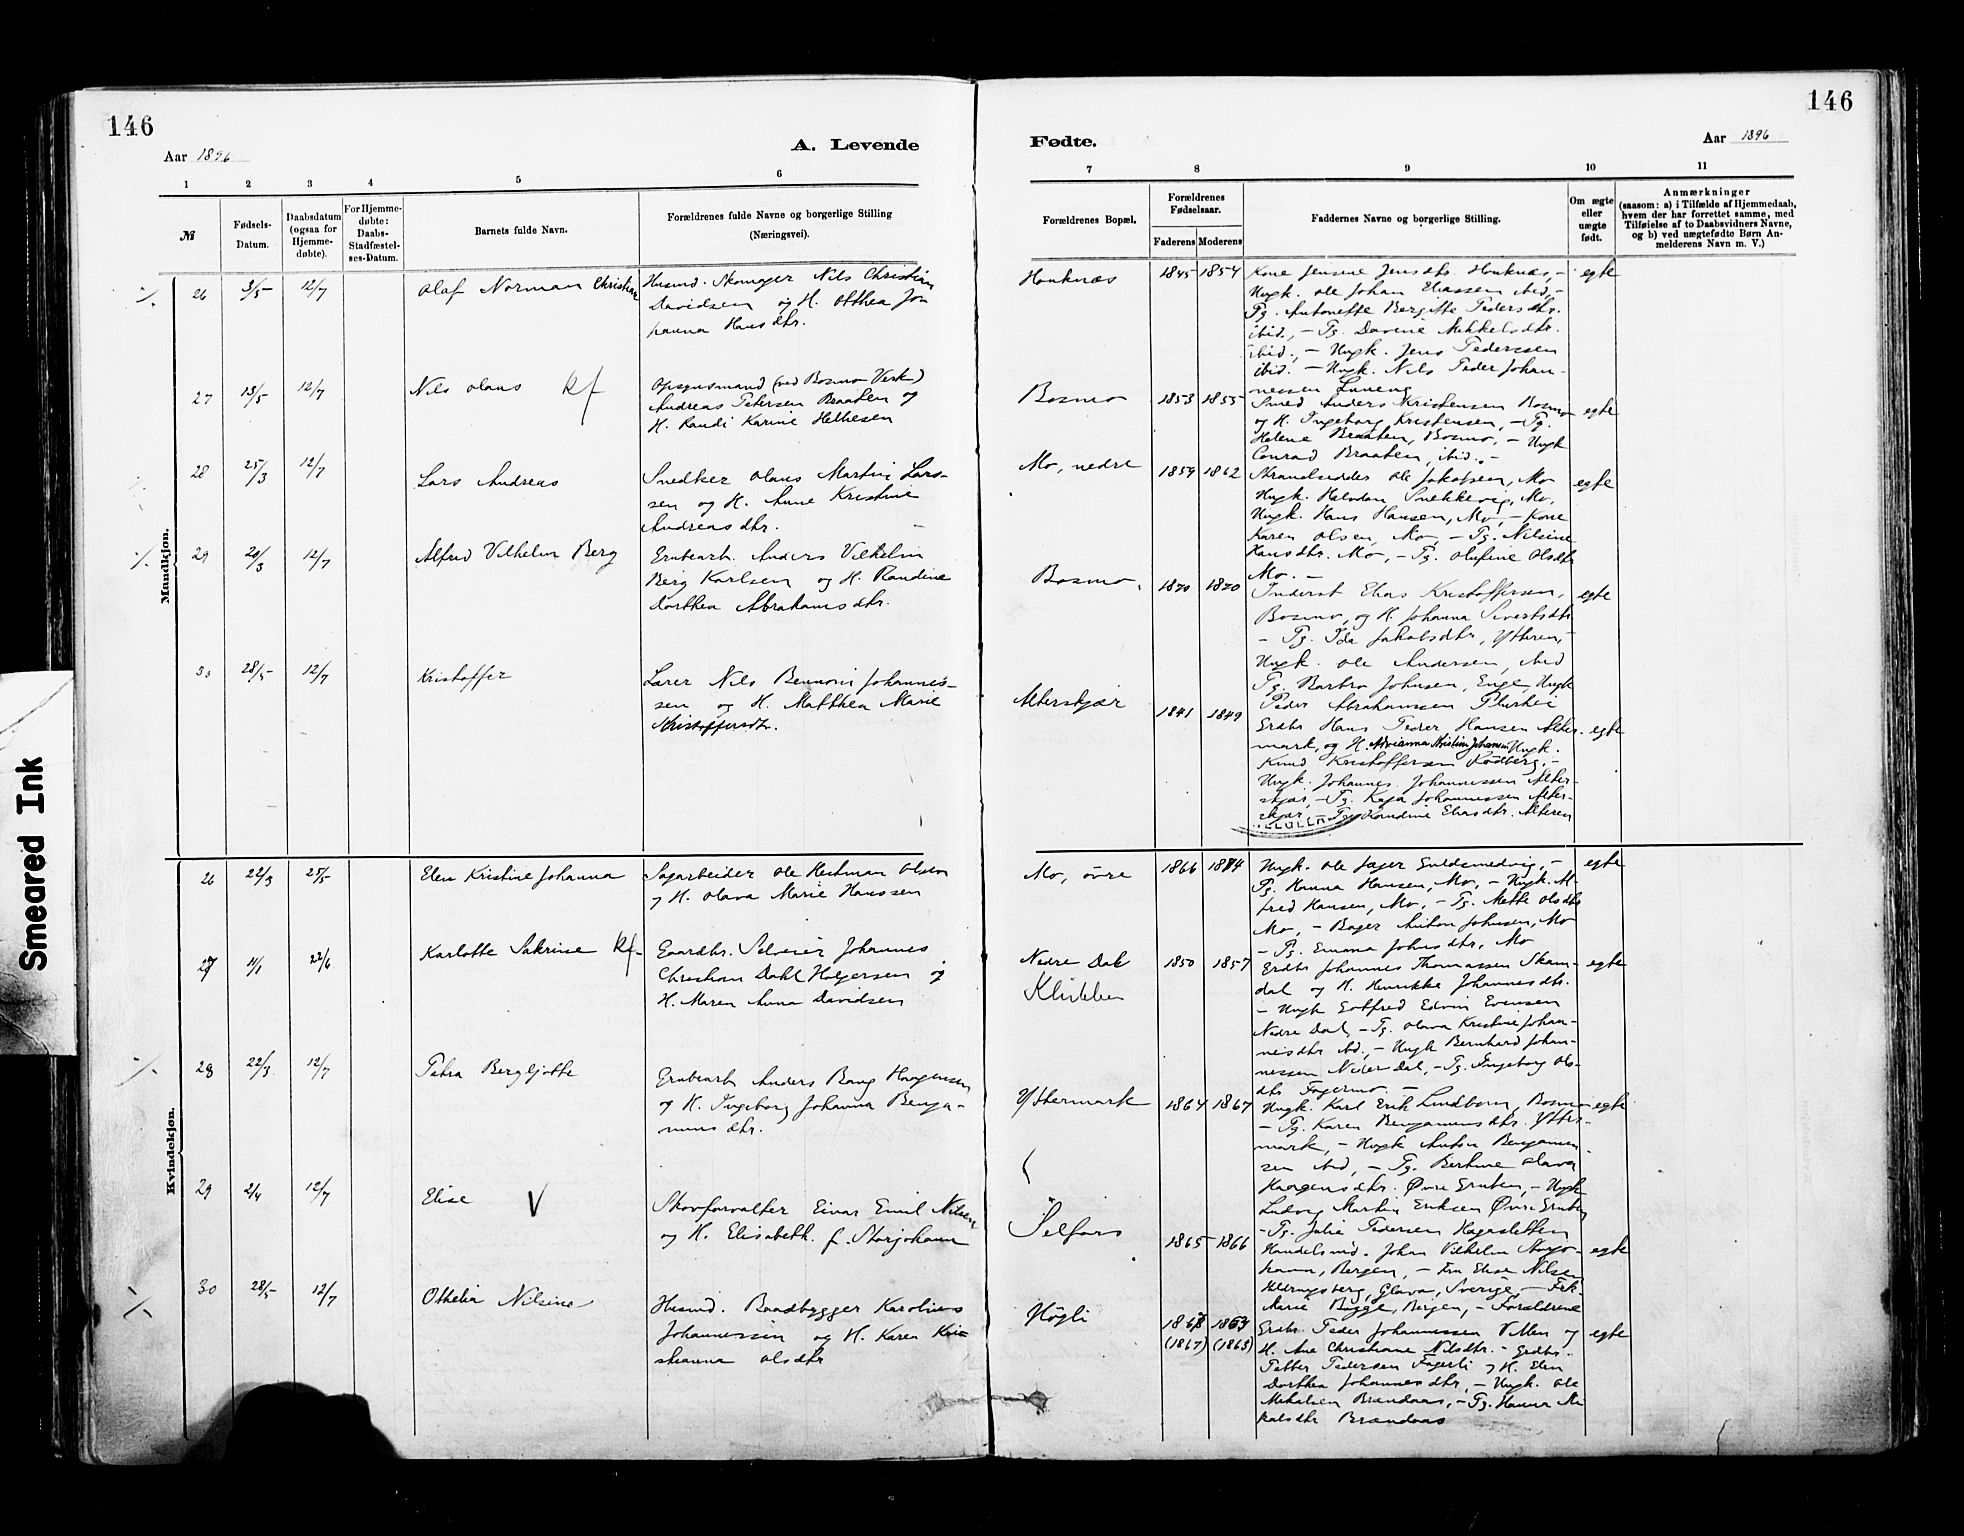 146
146
Aar 1896
A. Levende
Fødte.
Aar 1896
1 2 3 4 5 6
7 8 9 10 11
№
Fødsels-Datum.
Daabsdatum (ogsaa for Hjemmedøbte).
For Hjemmedøbte: Daabs-Stadfæstelses-Datum.
Barnets fulde Navn.
Forældrenes fulde Navne og borgerlige Stilling
(Næringsvei).
Forældrenes Bopæl.
Forældrenes Fødselsaar.
Faderens Moderens
Faddernes Navne og borgerlige Stilling.
Om ægte eller uægte født.
Anmærkninger
(saasom: a) i Tilfælde af Hjemmedaab,
hvem der har forrettet samme, med
Tilføielse af to Daabsvidners Navne,
og b) ved uægtefødte Børn An-
melderens Navn m. V.)
Mandkjøn.
26 3/5 12/7 Olaf Norman Christian
Husmd. Skomager Nils Christian
Davidsen og H. Otthea Jo
hanna Hansdtr.
Houknæs 1845 1854
Kone Jensine Jensdtr. Houknæs, –
Ungk. Ole Johan Eliassen ibid, –
Pg. Antonette Bergitte Pedersdtr.
ibid., – Pg. Davine Mikkelsdtr.
ibid., – Ungk. Jens Pederssen
ibid. – Ungk. Nils Peder Johan-
nessen
egte
27 13/5 12/7 Nils Olaus Kf
Opsynsmand (ved Bosmo Verk)
Andreas Petersen Braaten og
H. Randi Karine Hellesen
Bosmo 1853 1855
Smed Anders Kristensen Bosmo
og H. Ingeborg Kristensen, – Pg.
Helene Braaten, Bosmo, – Ungk
Conrad Braaten, ibid., –
egte
28 25/3 12/7 Lars Andreas
Snedker Olaus Martin Lars-
sen og H. Anne Kristine
Andreasdtr.
Mo, nedre 1859 1862
Strandsidder Ole Jakobsen, Mo
Ungk. Halvdan Snekkevig, Mo,
Ungk. Hans Hansen, Mo, – Kone
Karen Olsen, Mo – Pg. Nilsine
Hansdtr. Mo, – Pg. Olufine Olsdtr
Mo. –
egte
29 20/3 12/7 Alfred Vilhelm Berg
Grubearb. Anders Vilhelm
Berg Karlsen og H. Randine
Dorthea Abrahamsdtr.
Bosmo. 1870 1870
Inderst Elias Kristoffersen,
Bosmo, og H. Johanna Sivertsdtr
– Pg. Ida Jakobsdtr, Ytteren, –
Ungk. Ole Andersen, ibid
Pg. Barbro Johnsen, Enge, Ungk
Peder Abrahamssen
egte
30 28/5 12/7 Kristoffer
Lærer Nils Bennoni Johannes-
sen og H. Matthea Marie
Kristoffersdtr.
Alterskjær 1841 1849
Grdbr Hans Peder Hansen Alter-
mark, og H. Kristine Johansen Ungk.
Knud Kristoffersen Rödberg, –
Ungk. Johannes Johannessen Alter-
skjær, – Pg. Kaja Johannessen Alter-
skjær – Pg Randine Eliasdtr. Alteren
egte
Kvindekjøn.
26 22/3 25/5 Elen Kristine Johanna
Sagarbeider Ole Hestman Olsen
og H. Olava Marie Hanssen
Mo, övre 1866 1874
Ungk. Ole Jæger Guldsmedvig, –
Pg. Hanna Hansen, Mo, – Ungk. Al-
fred Hansen, Mo, – Pg. Mette Olsdtr
Mo, – Bager Anton Johnsen, Mo
– Pg. Emma Johnsdtr, Mo
egte
27 11/1 22/6 Karlotte Sakrine Kf.
Gaardbr. Selveier Johannes
Christian Dahl Holgersen og
H. Maren Anna Davidsen
Nedre Dal
Klubben
1850 1857
Grdbr Johannes Thomassen Skam-
dal og H. Henrikke Johannesdtr.
– Ungk Gotfred Edvin Evensen
Nedre Dal, – Pg. Olava Kristine Johan-
nesdtr ibd., – Ungk Bernhard Johan-
nessen Neder Dal, – Pg. Ingeborg Ols-
dtr Fagermo –
egte
28 22/3 12/7 Petra Bergljotte
Grubearb Anders Bang Haagensen
og H. Ingeborg Johanna Benja-
minsdtr.
Yttermark 1864 1867
Ungk. Karl Erik Lindbom, Bosmo
– Pg. Karen Benjaminsdtr. Ytter-
mark, – Ungk Anton Benjamin-
sen ibid, – Pg. Berthine Olava
Haagensdtr. Øvre Gruben, – Ungk
Ludvig Martin Eriksen Øvre Gruben
– Pg. Julie Pedersen Hagesletten
egte
29 2/4 12/7 Elise V
Skovforvalter Einar Emil Nilsen
og H. Elisabeth f. Storjohann
Selfors 1865 1866
Handelsmd. Johan Vilhelm Storjo-
hann, Bergen, – Fru Elise Nilsen
Glava, Sverige, – Frk.
Marie Bögge, Bergen, – Forældrene
egte
30 28/5 12/7 Othelia Nilsine
Husmd. Baadbygger Karolius
Johannessen og H. Karen Kri-
stianna Olsdtr
Högli 1867 1863
(1867) (1863)
Grdbr. Peder Johannessen Villen og
H. Ane Christiane Nilsdtr. – Grdbr.
Petter Pedersen Fagerli og H. Elen
Dorthea Johannesdtr, – Ungk. Ole
Mikalsen Brændaas, – Pg. Hanna Mi
kalsdtr Brændaas
egte
Smeared Ink